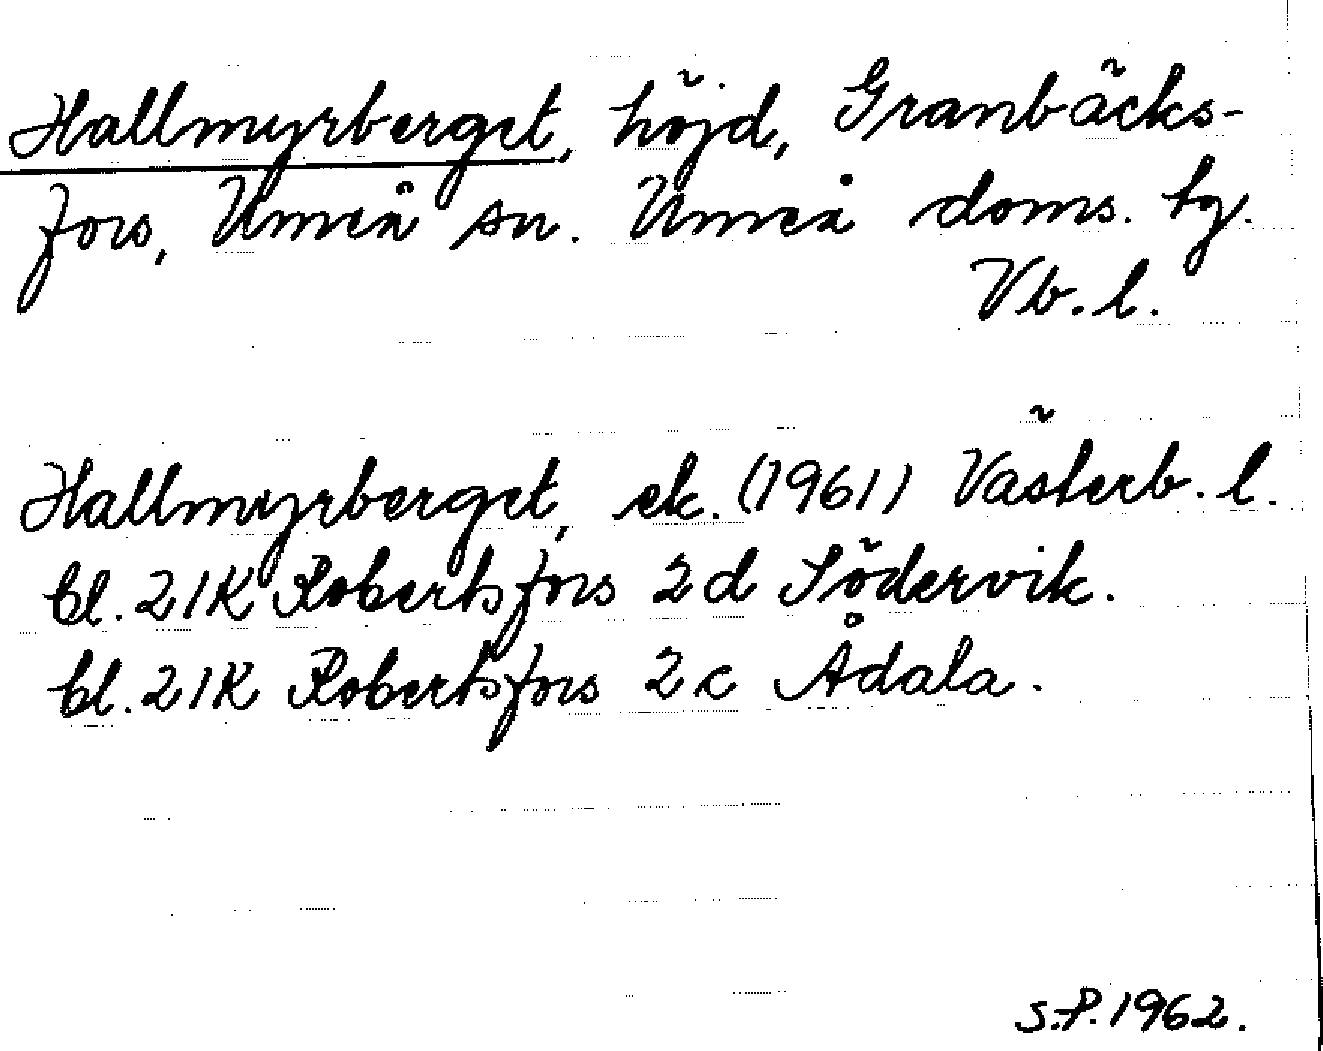 Hallmyrberget, höjd, Granbäcks-
fors, Umeå sn. Umeå doms. tg.
Vb. l.
Hallmyrberget, ek. (1961) Västerb. l.
bl. 21K Robertsfors 2d Södervik.
bl. 21K Robertsfors 2c Ådala.
S.P. 1962.